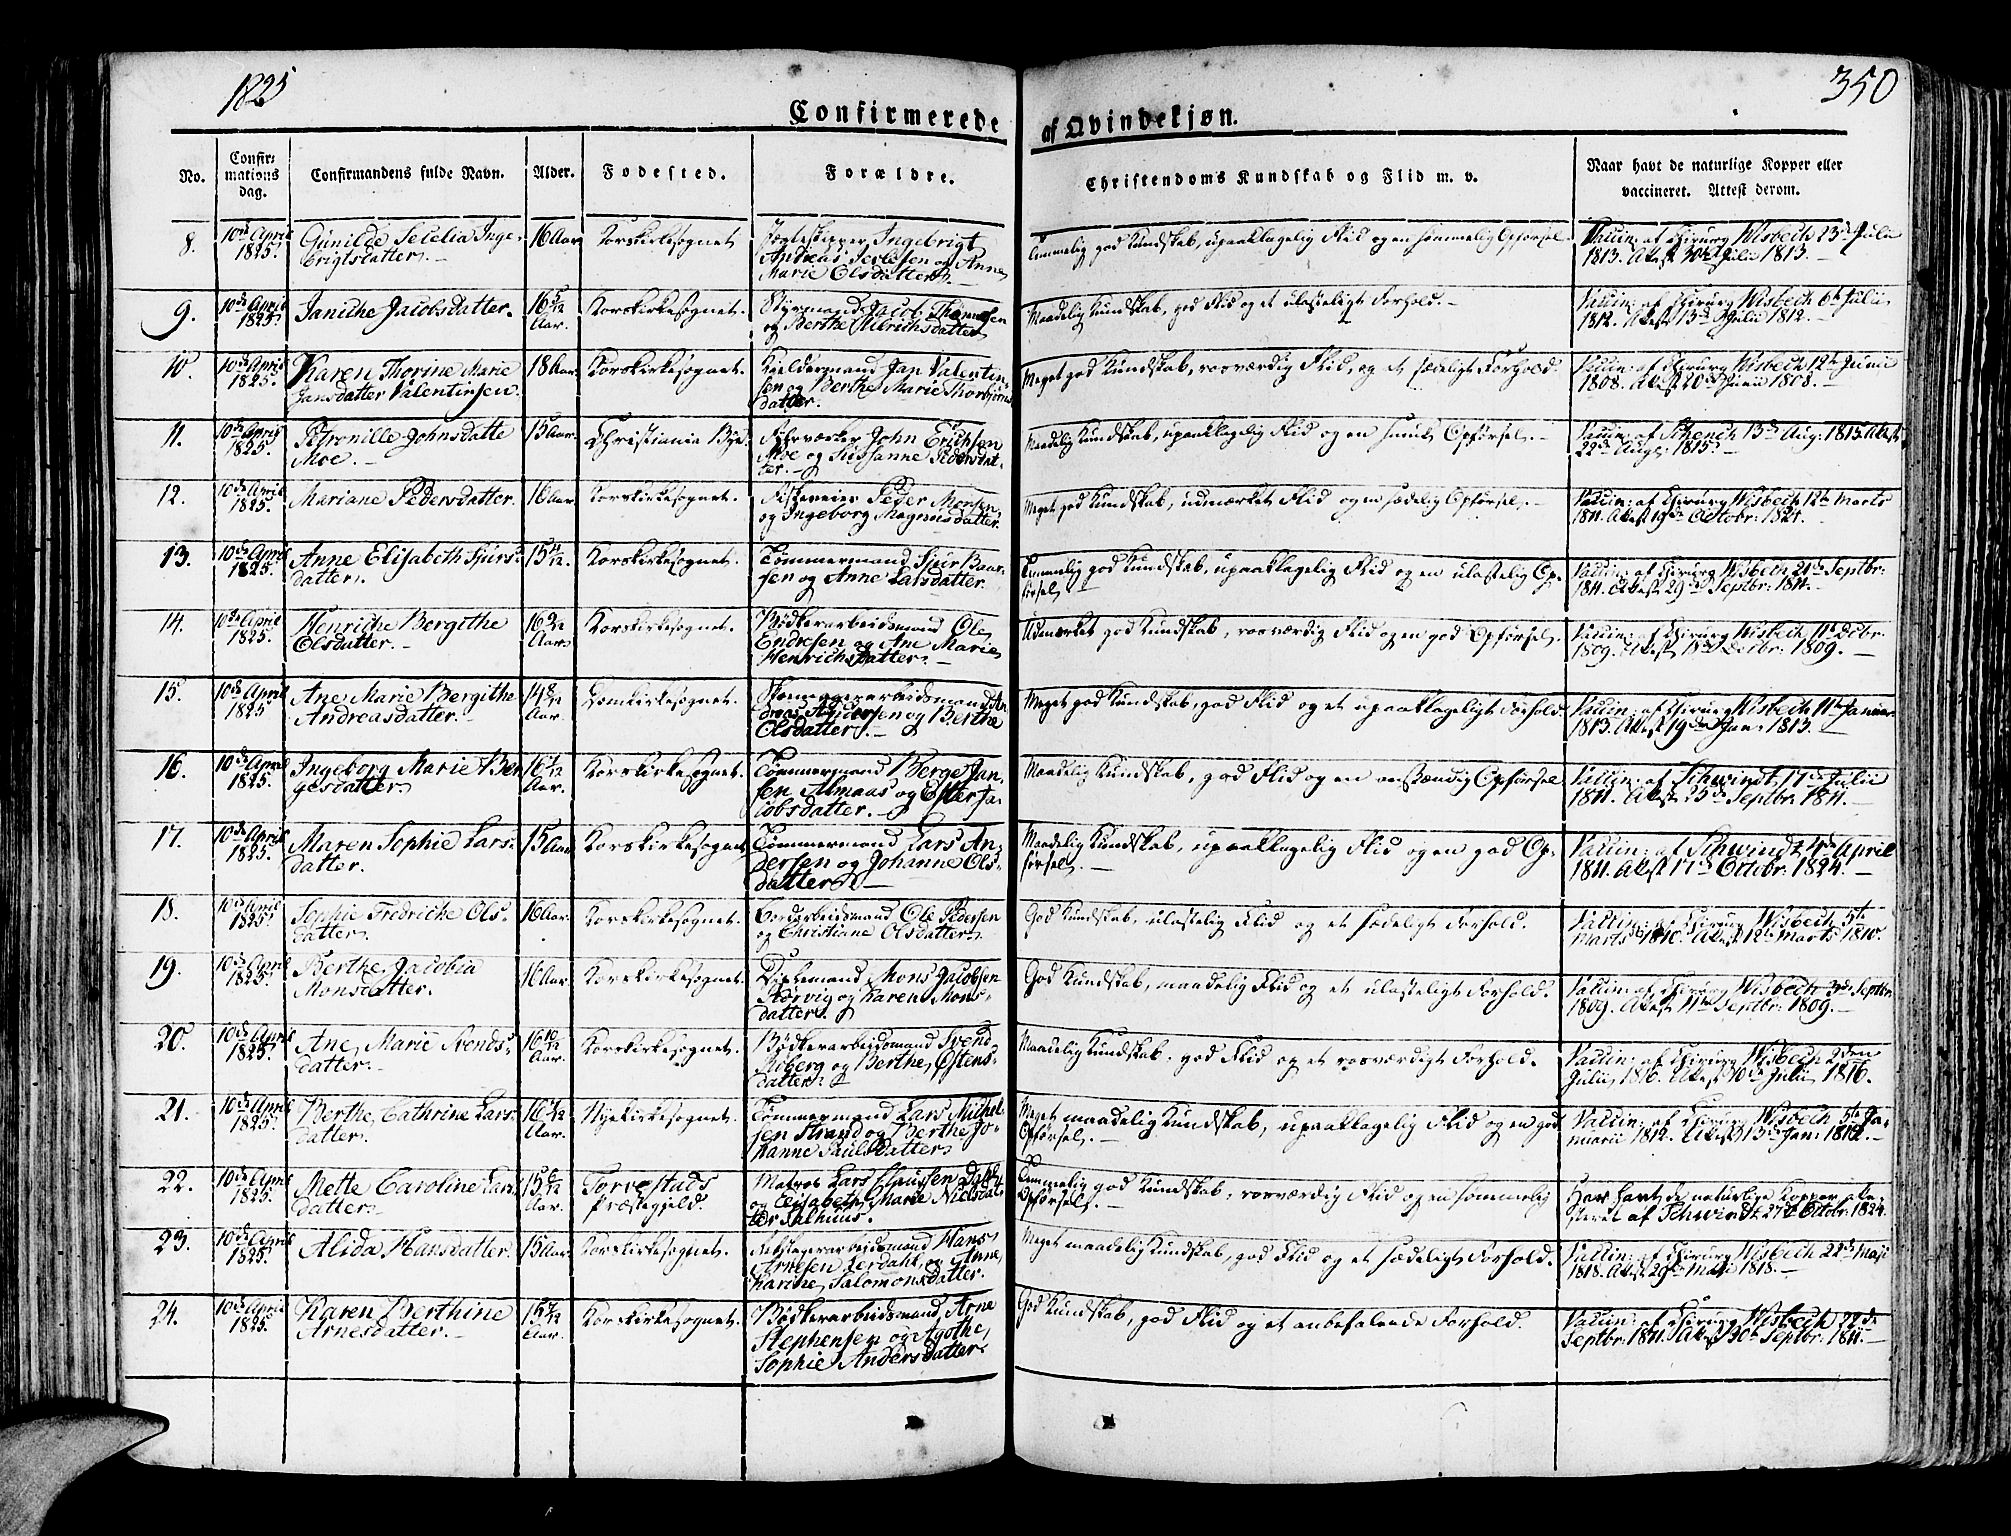 1825
350
Confirmerede af Qvindekjøn.
No. Confirmations dag. Confirmandens fulde Navn. Alder. Fødested. Forældre. Christendoms Kundskab og Flid m. v. Naar havt de naturlige Kopper eller vaccineret. Attest derom.
8. 10de April 1825. Gunilde Secelia Ingebrigtsdatter. 16 Aar Korskirkesognet Jægteskipper Ingebrigt Andreas og Anne Marie Olsdatter. Temmelig god Kundskab, upaaklagelig Flid og en sømmelig Opførsel. Vaccin: af Chirurg Wisbech 23de Julii 1813. Attest 30te Julii 1813.
9. 10de April 1825. Janiche Jacobsdatter. 16 5/12 Aar. Korskirkesognet. Styrmand Jacob Thomesen og Berthe Ulrichsdatter. Maadelig Kundskab, god Flid og et ulasteligt Forhold. Vaccin: af Chirurg Wisbech 6te Julii 1812. Attest 13de Julii 1812.
10. 10de April 1825. Karen Thorine Marie Jansdatter Valentinsen. 18 Aar. Korskirkesognet. Kjeldermand Jan Valentinsen og Berthe Marie Thorbjørnsdatter. Meget god Kundskab, rosværdig Flid, og et sædeligt Forhold. Vaccin: af Chirurg Wisbech 12te Junii 1808. Attest 20de Junii 1808.
11. 10de April 1825. Petronille Johnsdatte Moe. 15 Aar. Christiania Bye. John Erichsen Moe og Susanne Pedersdatter. Maadelig Kundskab, upaaklagelig Flid og en Opførsel. Vaccin: af Schench 13de Aug: 1815. Attest 22de Aug: 1815.
12. 10de April 1825. Mariane Pedersdatter. 16 Aar. Korskirkesognet. Peder Monsen og Ingeborg Magnesdatter. Meget god Kundskab, udmærket Flid og en sædelig Opførsel. Vaccin: af Chirurg Wisbech 12te Marts 1811. Attest 19de Octobr: 1821.
13. 10de April 1825. Anne Elisabeth Siursdatter. 15 4/12. Korskirkesognet. Tømmermand Siur Baarsen og Anne Larsdatter. Temmelig god Kundskab, upaaklagelig Flid og en ulastelig Opførsel. Vaccin: af Chirurg Wisbech 21de Septbr: 1811. Attest 29de Septbr: 1811.
14. 10de April 1825. Henriche Bergithe Olsdatter. 16 Aar Korskirkesognet. Bødkerarbeidsmand Ole Endresen og Ane Marie Henrichsdatter. Udmærket god Kundskab, rosværdig Flid og en god Opførsel. Vaccin: af Chirurg Wisbech 11te Decbr: 1809. Attest 18de Decbr: 1809.
15. 10de April 1825 Ane Marie Bergithe Andreasdatter. 14 8/12 Aar. Domkirkesognet. Andreas Andersen og Berthe Olsdatter. Meget god Kundskab, god Flid og et upaaklageligt Forhold. Vaccin: af Chirurg Wisbech 11te Januar 1813. Attest 19de Jan: 1813.
16. 10de April 1825. Ingeborg Marie Bergesdatter 16 Aar. Korskirkesognet. Tømmermand Berge Jansen Almaas og Ester Jacobsdatter. Maadelig Kundskab, god Flid og en anstændig Opførsel Vaccin: af Schwindt 17de Julii 1811. Attest 23de Septbr: 1811.
17. 10de April 1825. Maren Sophie Larsdatter. 15 Aar Korskirkesognet Tømmermand Lars Andersen og Johanne Olsdatter. Maadelig Kundskab, upaaklagelig Flid og en god Opførsel. Vaccin: af Schwindt 4de April 1811. Attest 17de Octobr: 1824.
18. 10de April 1825. Sophie Fredriche Olsdatter. 16 Aar. Korskirkesognet. Ole Pedersen og Christiane Olsdatter. God Kundskab, ulastelig Flid og et sædeligt Forhold. Vaccin: af Chirurg Wisbech 5te Marts 1810. Attest 12te Marts 1810.
19. 10de April 1825. Berthe Jacobia Monsdatter. 16 Aar. Korskirkesognet. Mons Jacobsen Storvig og Karen Monsdatter. God Kundskab, maadelig Flid og et ulasteligt Forhold. Vaccin: af Chirurg Wisbech 3de Septbr 1809. Attest 11te Septbr: 1809.
20. 10de April 1825. Ane Marie Svendsdatter. 16 10/12 Aar. Korskirkesognet. Bødkerarbeidsmand Svend og Berthe Østensdatter. Maadelig Kundskab, god Flid og et rosværdigt Forhold. Vaccin: af Chirurg Wisbech 2den Julii 1816. Attest 10de Julii 1816.
21. 10de April 1825. Berthe Cathrine Larsdatter. 16 Aar. Nyekirkesognet. Tømmermand Lars Michelsen Strand og Berthe Johanne Paulsdatter Meget maadelig Kundskab, upaaklagelig Flid og en god Opførsel. Vaccin: af Chirurg Wisbech 5te Januarii 1812. Attest 13de Jan: 1812.
22. 10de April 1825. Mette Caroline Larsdatter. 15 Aar. Torvestads Præstegjeld. Matros Lars Clausen Dahl og Elisabeth Marie Nielsdatter Salhuus. Temmelig god Kundskab, rosværdig Flid og en sømmelig Opførsel. Har havt de naturlige Kopper attesteret af Schwindt 27de Octobr: 1824.
23. 10de April 1825. Alida Hansdatter. 15 Aar. Korskirkesognet. Hans Arnesen Leirdahl og Anne Karine Salomonsdatter. Meget maadelig Kundskab, god Flid og et sædeligt Forhold. Vaccin: af Chirurg Wisbech 22de Maji 1818. Attest 29de Maji 1818.
24. 10de April 1825. Karen Berthine Arnesdatter. 15 7/12 Aar. Korskirkesognet. Bødkerarbeidsmand Arne Stephensen og Agothe Sophie Andersdatter. God Kundskab, god Flid og et anbefalende Forhold. Vaccin: af Chirurg Wisbech 22de Septbr: 1811. Attest 30te Septbr: 1811.